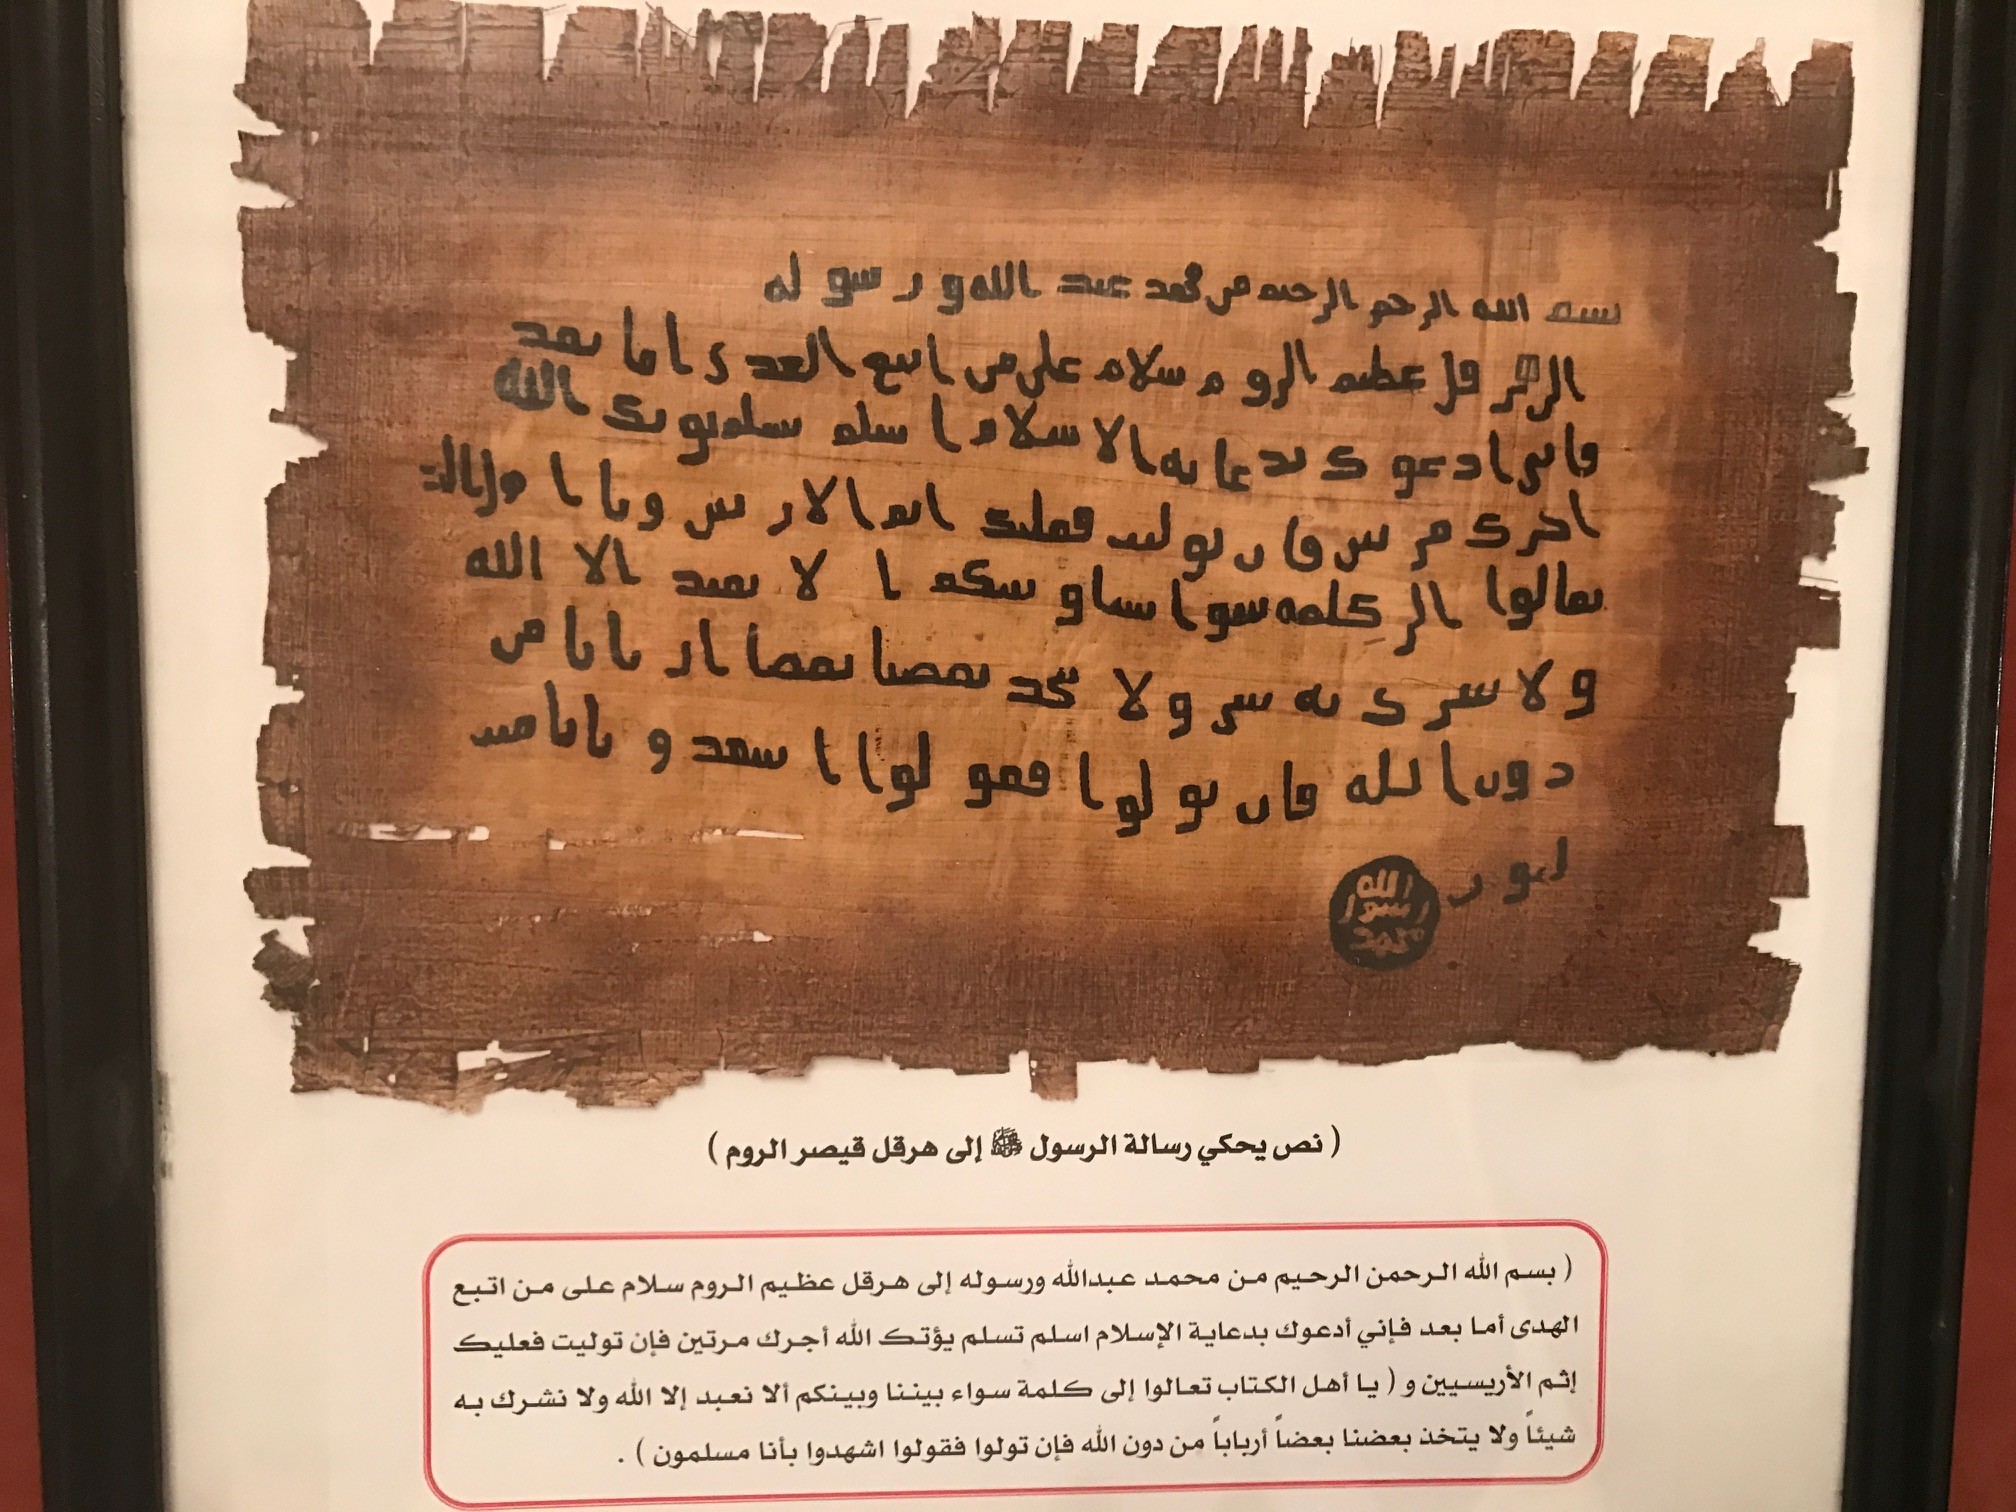 بسم الله الرحمن الرحيم من محمد عبد الله ورسوله
الى هرقل عظيم الروم سلام على من اتبع الهدى اما بعد
فانى ادعوك بدعايه الاسلام اسلم تسلم يوتك الله
اجرك مرتين فان توليت فعليك اثم الاريسين و يا ا
تعالوا الى كلمه سوا بيننا وبينكم ا لا نعبد الا الله
ولا نشرك به شيا ولا يتخذ بعضنا بعضا اربابا من
دون الله فان تولوا فقولوا اشهدوا بانا مسلمون
الله
رسول
محمد
( نص يحكي رسالة الرسول ﷺ إلى هرقل قيصر الروم )
( بسم الله الرحمن الرحيم من محمد عبدالله ورسوله إلى هرقل عظيم الروم سلام على من اتبع
الهدى أما بعد فإني أدعوك بدعاية الإسلام اسلم تسلم يؤتك الله أجرك مرتين فإن توليت فعليك
إثم الأريسيين و ( يا أهل الكتاب تعالوا إلى كلمة سواء بيننا وبينكم ألا نعبد إلا الله ولا نشرك به
شيئاً ولا يتخذ بعضنا بعضاً أرباباً من دون الله فإن تولوا فقولوا اشهدوا بأنا مسلمون ) .